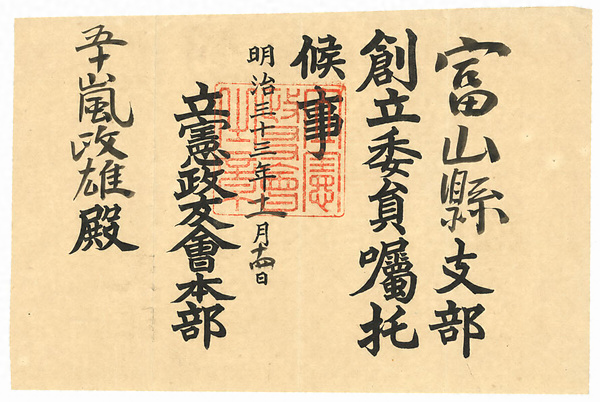 富山縣支部
創立委員囑托
候事
明治三十三年十一月十四日
立憲政友會本部
五十嵐政雄殿